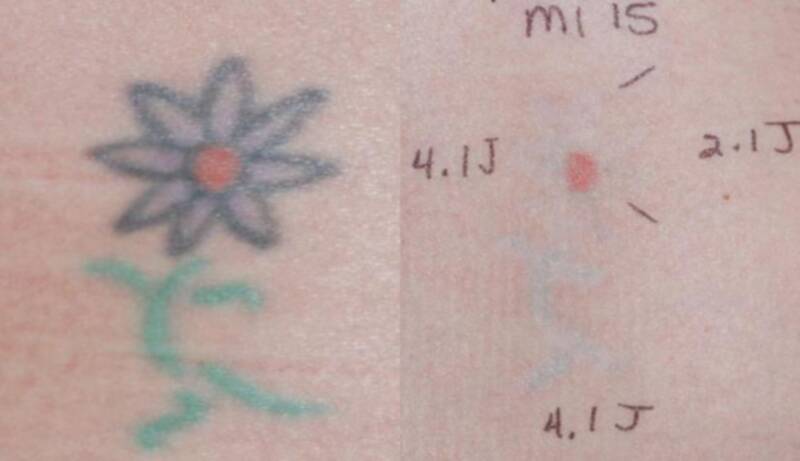 m1 15
4.1J
2.1J
4.1J